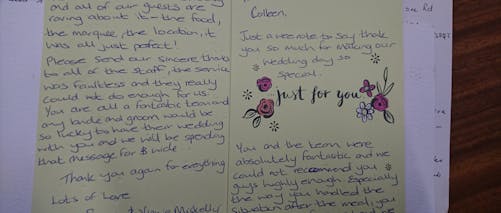 and all of our guests are
raving about it - the food,
the marquee, the location, it
was all just perfect!
Please send our sincere thanks
to all of the staff, the service
was flawless and they really
could not do enough for us.
You are all a fantastic team and
any bride and groom would be
so lucky to have their wedding
with you and we will be spending
that message far & wide.
Thank you again for everything
Lots of Love
Colleen,
Just a wee note to say thank
you so much for making our
wedding day so
special.
Just for you
You and the team were
absolutely fantastic and we
could not recommend you
guys highly enough. Especially
the way you handled the
situation after the meal, you